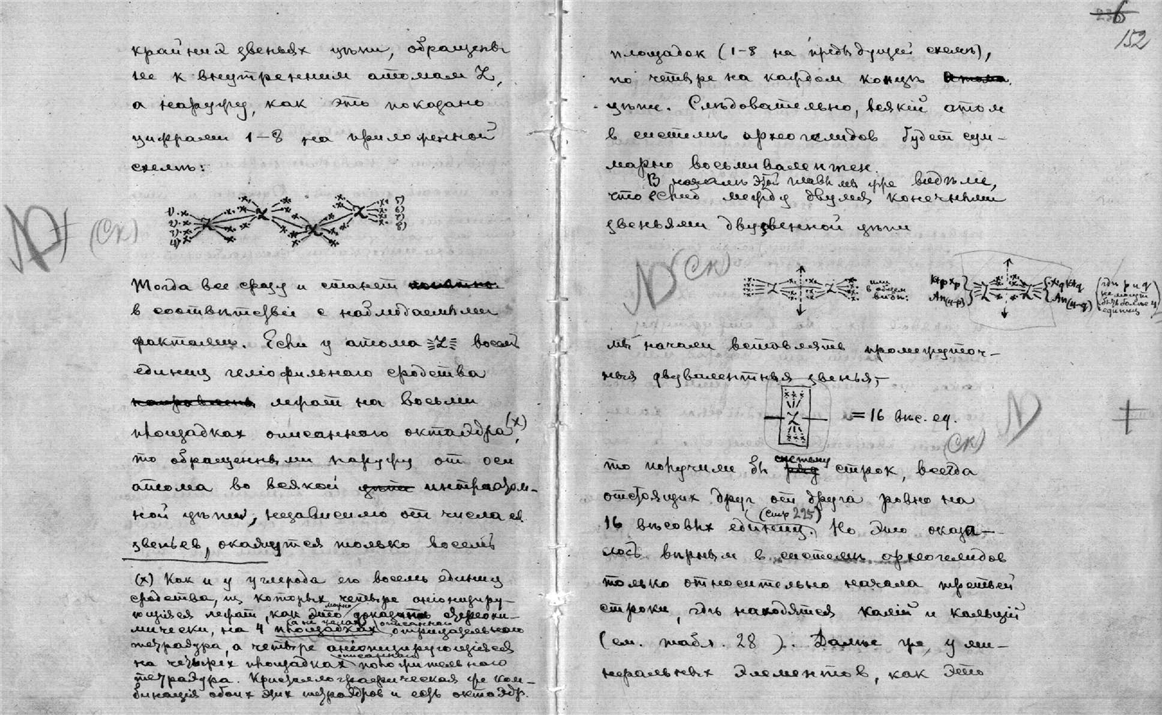 крайния звеньях цѣпи, обращены
не к внутренним атомам Z,
а наружу, как это показано
цифрами 1—8 на приложенной
схемѣ:
1)
2)
3)
4)
5)
6)
7)
8)
(Ск)
Тогда все сразу и станет
в соотвѣтствіи с наблюдаемыми
фактами. Если у атома Z восемь
единиц геліофильного сродства
направлены лежат на восьми
площадках описанного октаэдра (х),
то обращенными наружу от оси
атома во всякой цѣпи интраатом-
ной цѣпи, независимо от числа ея
звеньев, окажутся только восемь
(х) Как и у углерода его восемь единиц
сродства, из которых четыре аніонизиру-
ющіяся лежат, как это доказано стереохи-
мически, на 4 площадках описанной отрицательного
тетраэдра, а четыре
на четырех площадках положительного
тетраэдра. Кристаллографическая же ком-
бинація обоих этих тетраэдров и есть октаэдр.
6
152
площадок (1—8 на предыдущей схемѣ),
по четыре на каждом концѣ
цѣпи. Слѣдовательно, всякій атом
в системѣ археогелидов будет сум-
марно восьмивалентен.
В началѣ этой главы мы уже видѣли,
что если между двумя конечными
звеньями двузвенной цѣпи
(Ск)
или в общем видѣ:
(гдѣ p и q не могут быть больше 4 единиц)
мы начали вставлять промежуточ-
ныя двувалентныя звенья,
= 16 вѣс. ед.
(Ск)
то получили бы систему строк, всегда
отстоящих друг от друга ровно на
16 вѣсовых единиц (стр 225). Но это оказа-
лось вѣрным в системѣ археогелидов
только относительно начала третьей
строки, гдѣ находятся калій и кальцій
(см. табл. 28 ). Дальше же, у ми-
неральных элементов, как это